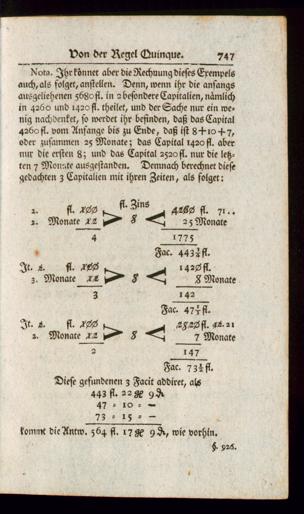 Von der Regel Quinque. 747
Nota. Ihr könnet aber die Rechnung dieses Exempels
auch, als folget, anstellen. Denn, wenn ihr die anfangs
ausgeliehenen 5680 fl. in 2 besondere Capitalien, nämlich
in 4260 und 1420 fl. theilet, und der Sache nur ein we-
nig nachdenket, so werdet ihr befinden, daß das Capital
4260 fl. vom Anfange bis zu Ende, daß ist 8+10+7,
oder zusammen 25 Monate; das Capital 1420 fl. aber
nur die ersten 8; und das Capital 2520 fl. nur die letz-
ten 7 Monate ausgestanden. Demnach berechnet diese
gedachten 3 Capitalien mit ihren Zeiten, als folget:
fl. Zins
2. fl. 100 4260 fl. 71..
8
2. Monate 12 25 Monate
4 1775
Fac. 443¾ fl.
It. 2. fl. 100 1420 fl.
8
3. Monate 12 8 Monate
3 142
Fac. 47⅓ fl.
It. 2. fl. 100 2520 fl. 42.21
8
2. Monate 12 7 Monate
2 147
Fac. 73½ fl.
Diese gefundenen 3 Facit addiret, als
443 fl. 22 9
47 = 10 = —
73 = 15 = —
kommt die Antw. 564 fl. 17 9, wie vorhin.
§. 926.